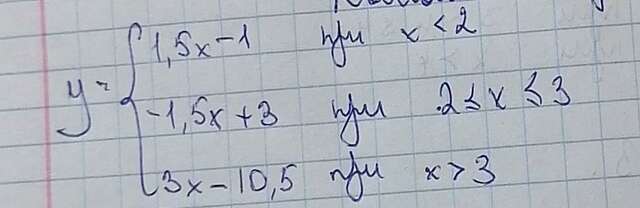 y = { 1,5x - 1 при x < 2
-1,5x + 3 при 2 ≤ x ≤ 3
3x - 10,5 при x > 3